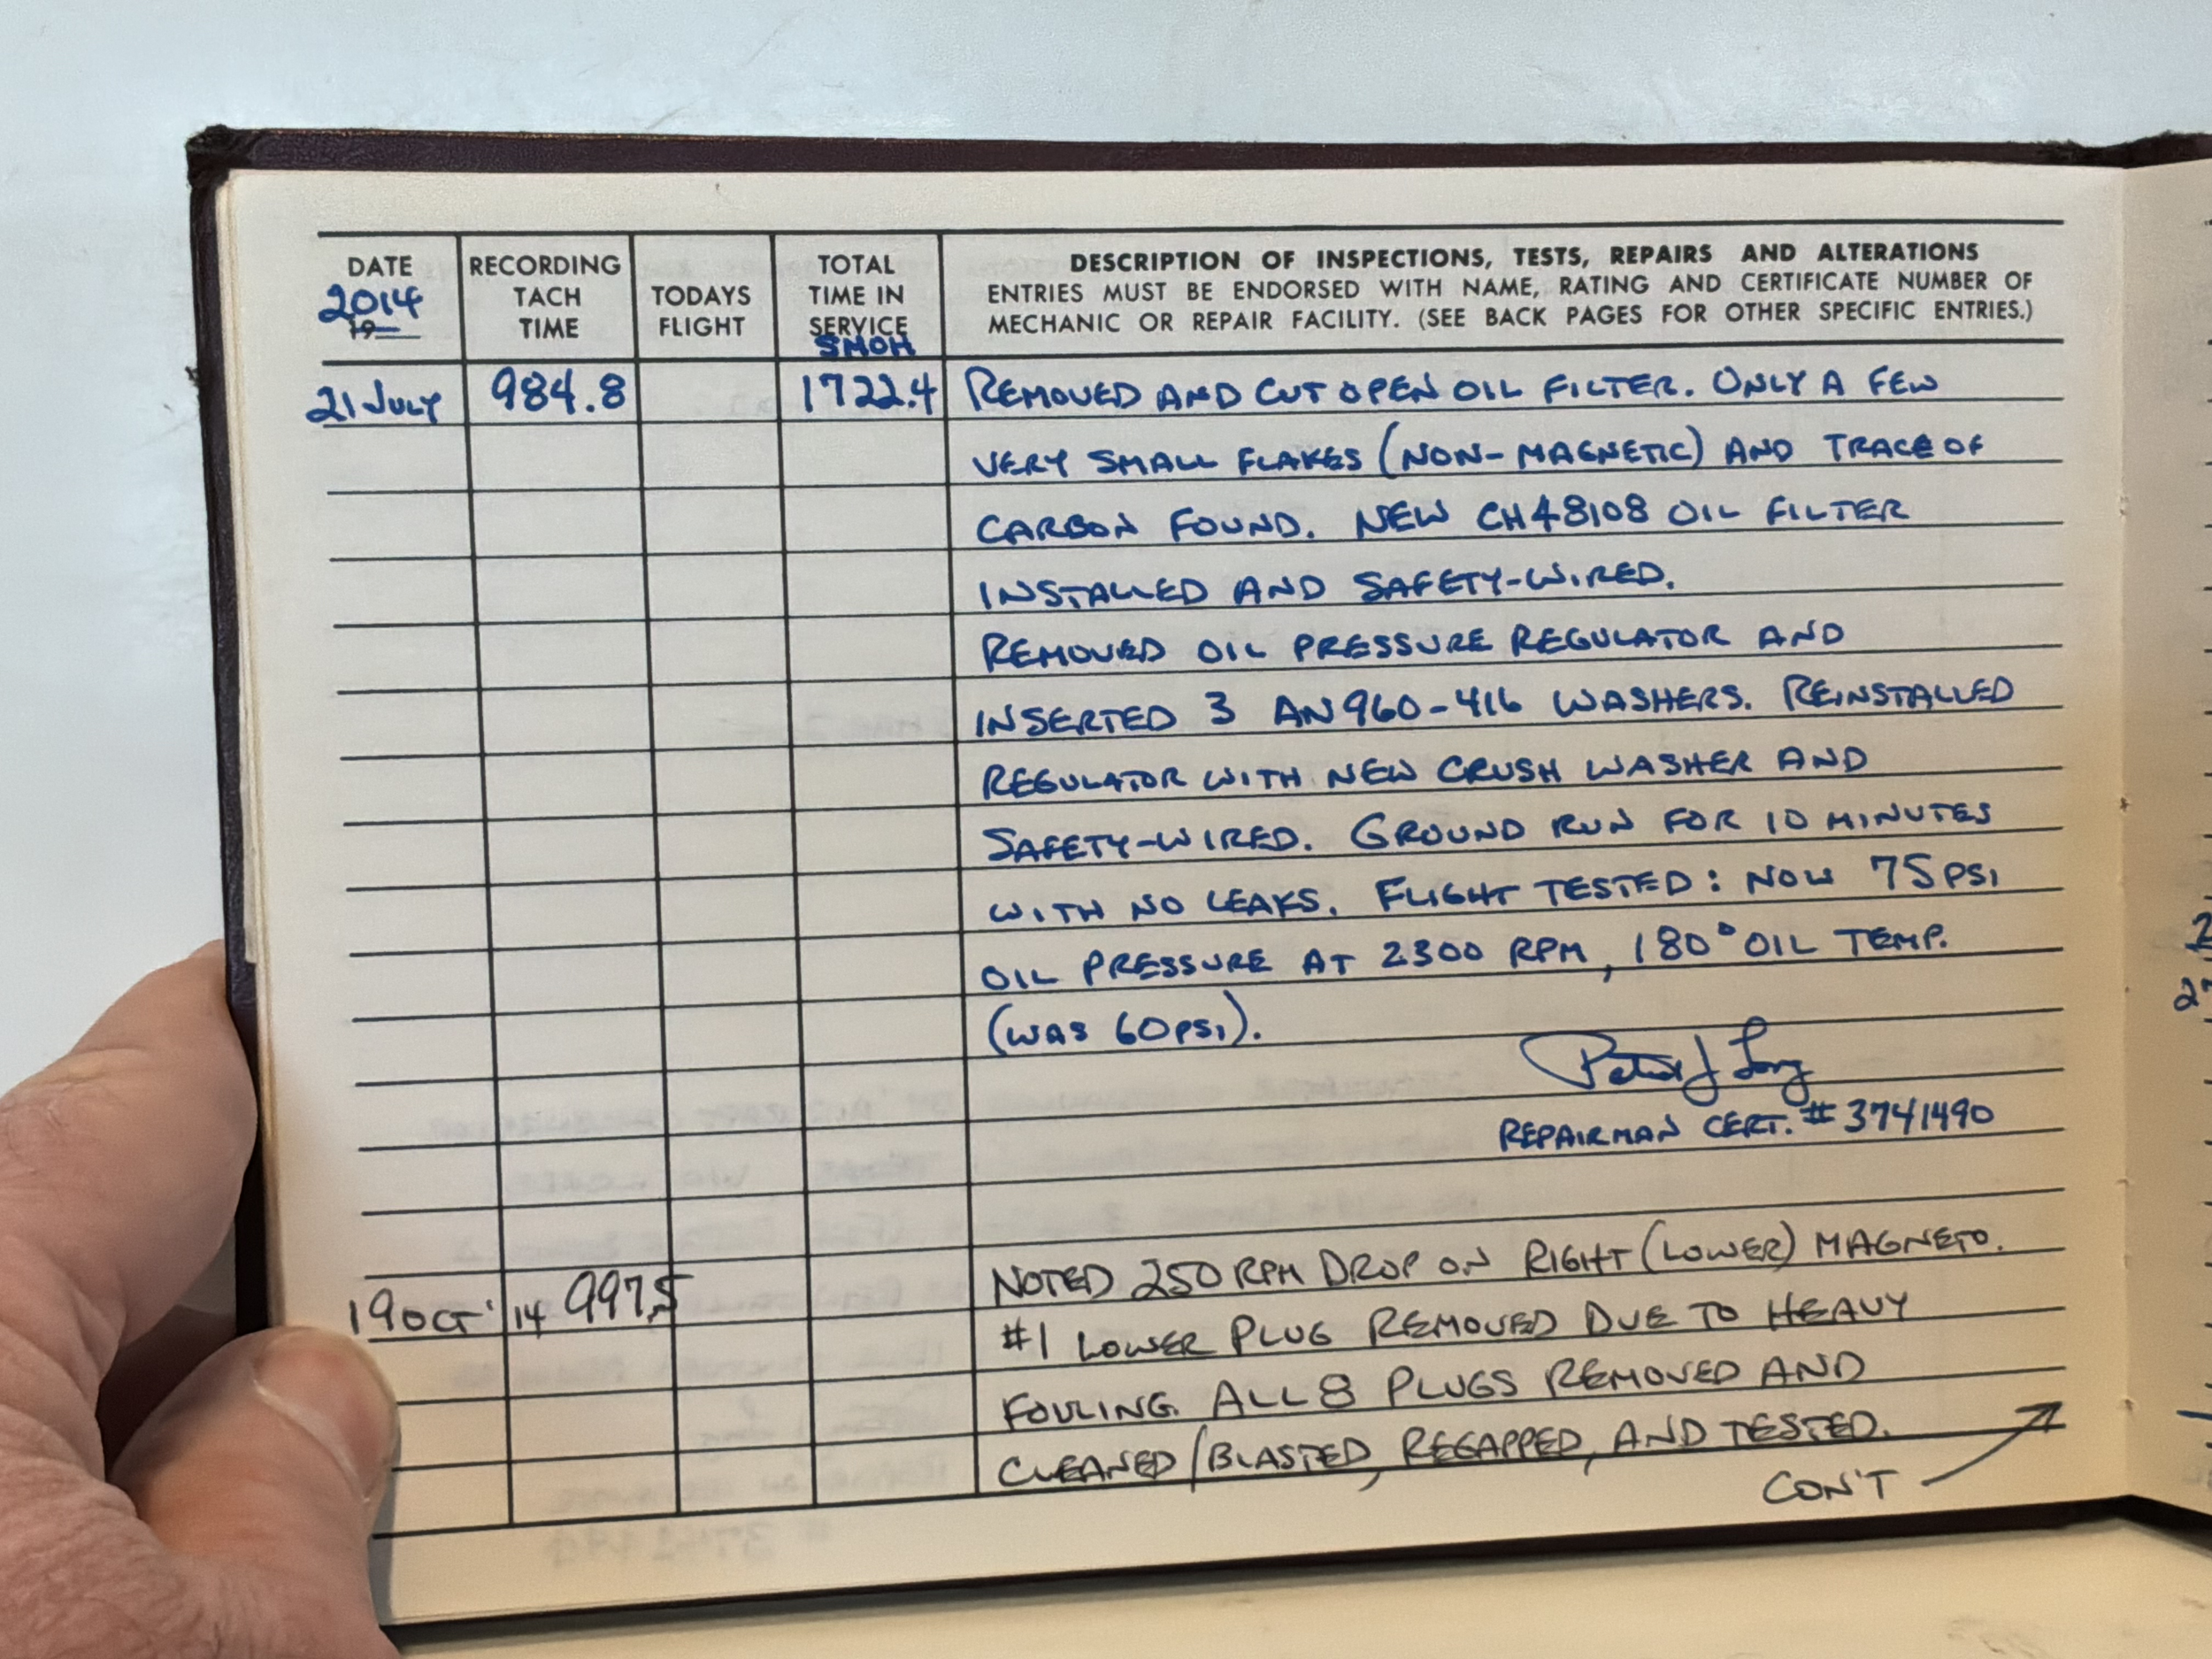 DATE RECORDING TACH TIME TODAYS FLIGHT TOTAL TIME IN SERVICE DESCRIPTION OF INSPECTIONS, TESTS, REPAIRS AND ALTERATIONS
ENTRIES MUST BE ENDORSED WITH NAME, RATING AND CERTIFICATE NUMBER OF
MECHANIC OR REPAIR FACILITY. (SEE BACK PAGES FOR OTHER SPECIFIC ENTRIES.)
2014
19
SMOH
21 JULY 984.8 1722.4 REMOVED AND CUT OPEN OIL FILTER. ONLY A FEW
VERY SMALL FLAKES (NON-MAGNETIC) AND TRACE OF
CARBON FOUND. NEW CH48108 OIL FILTER
INSTALLED AND SAFETY-WIRED.
REMOVED OIL PRESSURE REGULATOR AND
INSERTED 3 AN960-416 WASHERS. REINSTALLED
REGULATOR WITH NEW CRUSH WASHER AND
SAFETY-WIRED. GROUND RUN FOR 10 MINUTES
WITH NO LEAKS. FLIGHT TESTED: NOW 75 PSI
OIL PRESSURE AT 2300 RPM, 180° OIL TEMP.
(WAS 60 PSI).
Peter J Long
REPAIRMAN CERT. # 3741490
19 OCT '14 997.5 NOTED 250 RPM DROP ON RIGHT (LOWER) MAGNETO.
#1 LOWER PLUG REMOVED DUE TO HEAVY
FOULING. ALL 8 PLUGS REMOVED AND
CLEANED/BLASTED, REGAPPED, AND TESTED.
CON'T